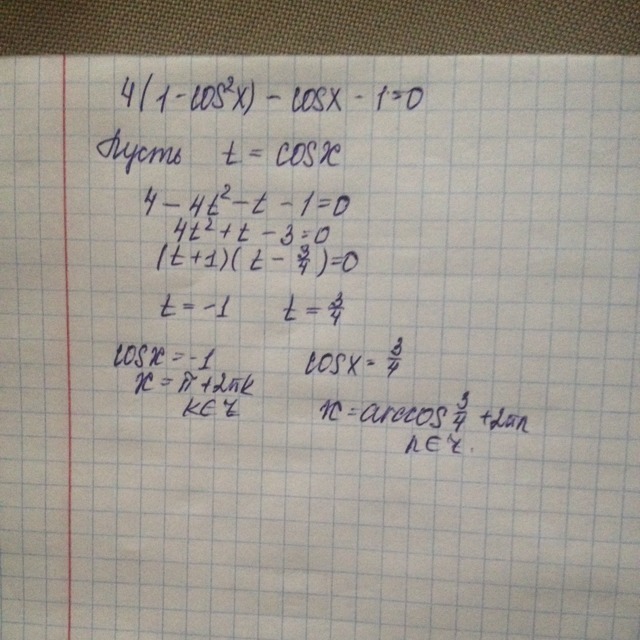 4(1-cos²x) - cosx - 1=0
Пусть t = cosx
4 - 4t² - t - 1=0
4t² + t - 3=0
(t+1)(t - 3/4)=0
t = -1 t = 3/4
cosx = -1 cosx = 3/4
x = π+2πk x = arccos 3/4 + 2πn
k∈Z n∈Z.